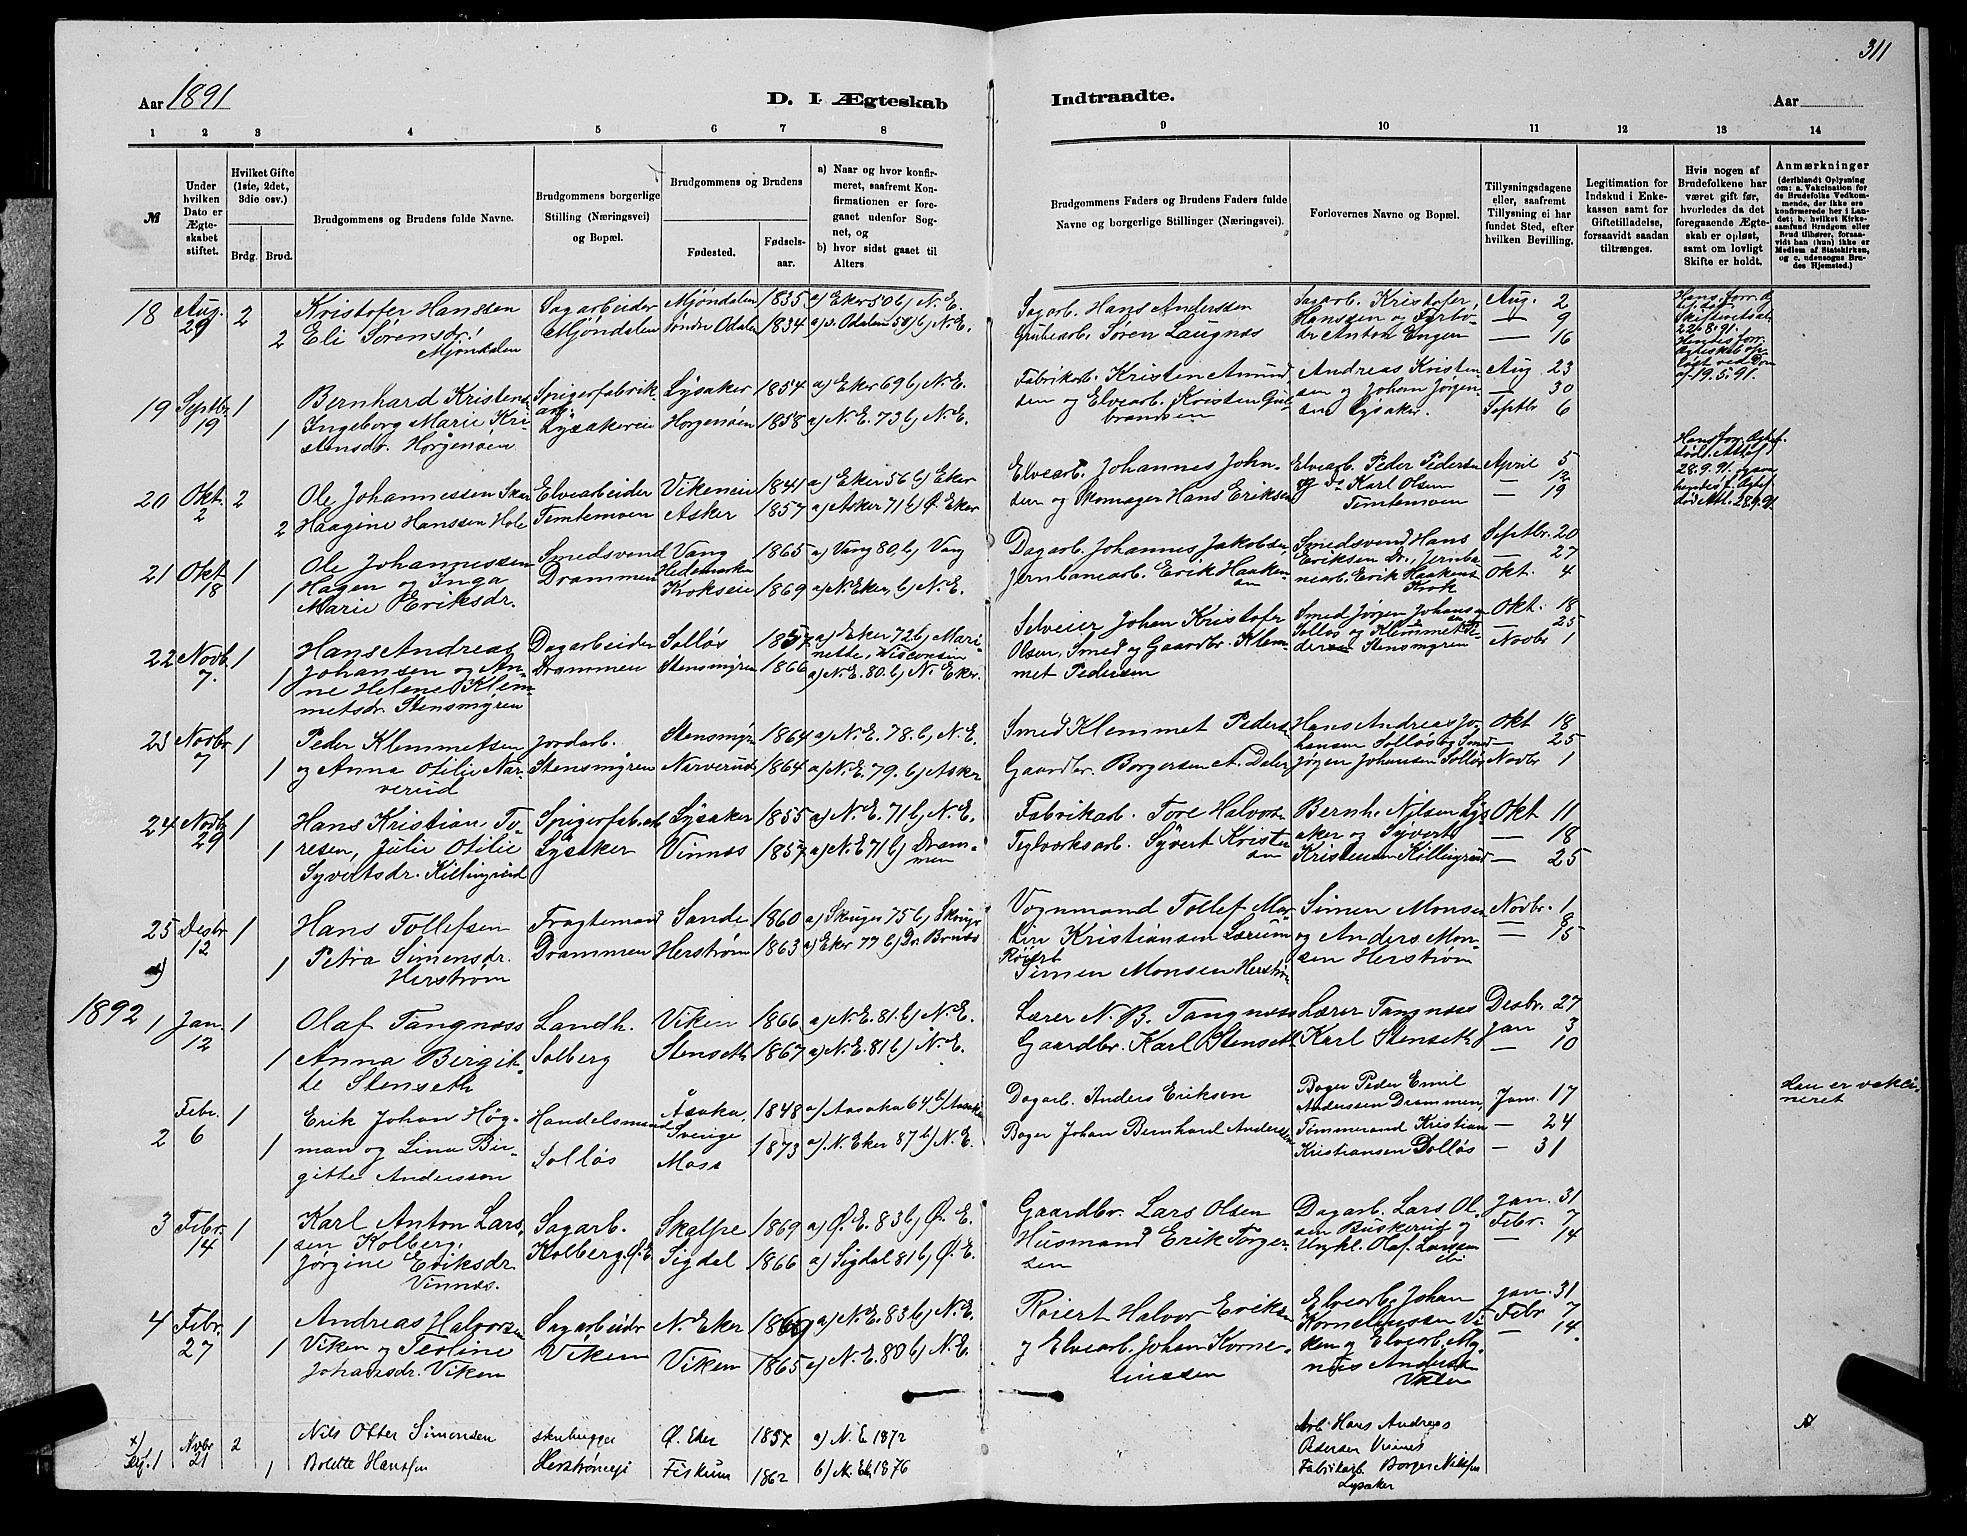 311
Aar 1891
D. I. Ægteskab
Indtraadte.
Aar
1 2 3 4 5 6 7 8 9 10 11 12 13 14
№
Under hvilken Dato er Ægteskabet stiftet.
Hvilket Gifte (1ste, 2det, 3die osv.)
Brdg. Brud.
Brudgommens og Brudens fulde Navne.
Brudgommens borgerlige Stilling (Næringsvei) og Bopæl.
Brudgommens og Brudens
Fødested.
Fødselsaar.
a) Naar og hvor konfirmeret, saafremt Konfirmationen er foregaaet udenfor Sognet, og
b) hvor sidst gaaet til Alters
Brudgommens Faders og Brudens Faders fulde Navne og borgerlige Stillinger (Næringsvei).
Forlovernes Navne og Bopæl.
Tillysningsdagene eller, saafremt Tillysning ei har fundet Sted, efter hvilken Bevilling.
Legitimation for Indskud i Enkekassen samt for Giftetilladelse, forsaavidt saadan tiltrænges.
Hvis nogen af Brudefolkene har været gift før, hvorledes da det foregaaende Ægteskab er opløst, samt om lovligt Skifte er holdt.
Anmærkninger
(deriblandt Oplysning om: a. Vakcination for de Brudefolks Vedkommende, der ikke ere konfirmerede her i Landet; b. hvilket Kirkesamfund Brudgom eller Brud tilhører, forsaavidt han (hun) ikke er Medlem af Statskirken, og c. udensogns Brudes Hjemsted.)
18 Aug. 29 2 Kristofer Hanssen Sagarbeider Mjöndalen 1835 a) Eker 50 b) N. E.
2 Eli Sørensdr. Mjöndalen Mjöndalen Söndre Odalen 1834 a) s. Odalen 50 b) N. E.
Sagarb. Hans Anderssen
Grubearb. Søren Laugnæs
Sagarb. Kristofer Hanssen og Anton Engen
Aug. 2 — 9 — 16
22.8.91.
19.5.91.
19 Septbr 19 1 Bernhard Kristens. Spigerfabrikarb. Lysaker 1854 a) Eker 69 b) N. E.
1 Ingeborg Marie Kristensdr. Horgensøen Lysakereie Horgensøen 1858 a) N. E. 73 b) N. E.
Fabrikarb. Kristen Amundsen og Elvearb. Kristen Gulbrandsen
Andreas Kristensen og Johan Jørgensen Lysaker.
Aug 23 — 30 Septbr 6
20 Okt. 2 2 Ole Johannessen Elvearbeider Vikeneie 1841 a) Eker 56 b) Eker
2 Haagine Hanssen Hole Temtemoen Asker 1857 a) Asker 71 b) Ø. Eker
Elvearb. Johannes Johnsen og Skomager Hans Eriksen
Elvearb. Peder Pedersen og Do Karl Olsen Temtemoen
April 5 — 12 — 19
28.9.91
21 Okt 18 1 Ole Johannessen Hagen og Inga Smedsvend Vang Hedemarken 1865 a) Vang 80. b) Vang
1 Marie Eriksdr. Drammen Krokseie 1869 a) N. Eker, b) N. E.
Dagarb. Johannes Jakobsen,
Jernbanearb. Erik Haakensen
Smedsvend Hans Eriksen Dr., Jernbanearb. Erik Haakens. Krok
Septbr. 20 — 27 Okt. 4
22 Novb. 7. 1 Hans Andreas Johansen og Dagarbeider Solløs 1857 a) Eker 72 b) Marinette, Wisconsin
1 Anne Helene Klemmetsdr. Stensmyren Drammen Stensmyren 1866 a) N. E. 80. b) N. Eker.
Selveier Johan Kristofer Olsen, Smed og Gaardbr. Klemmet Pedersen
Smed Jørgen Johansen Solløs og Klemmet Pedersen Stensmyren
Okt. 18 — 25 Novbr 1
23 Novbr 7 1 Peder Klemmetsen Jordarb. Stensmyr. 1864 a) N. E. 78. b) N. E.
1 og Anna Otilie Narverud Stensmyren Narverud 1864 a) N. E. 79. b) Asker
Smed Klemmet Peders.
Gaardbr. Borgersen
Hans Andreas Johansen Solløs og Smed Jørgen Johansen Solløs
Okt 18 — 25 Novbr 1
24 Novbr 29 1 Hans Kristian Toresen, Spigerfab.arb Lysaker 1855 a) N. E. 71 b) N. E.
1 Julie Otilie Syvertsdr. Killingrud Lysaker Vinnæs 1857 a) N. E. 71 b) Drammen
Fabrikarb. Tore Halvors.
Teglværksarb. Syvert Kristensen
Bernh. Nilsen Lysaker og Syvert Kristensen Killingrud
Okt 11 — 18 — 25
25 Desbr 12 1 Hans Tollefsen Fragtemand Sande 1860 a) Skoger 75 b) Skoger
1 Petra Simensdr. Herstrøm Drammen Herstrøm 1863 a) Eker 77 b) Dr. Bragnæs
Vognmand Tollef Martin Kristiansen
Röierb Simen Monsen Herstrøm
Simen Monsen og Anders Monsen Herstrøm
Novbr. 1 — 8 — 15
1892 1 Jan. 12 1 Olaf Tangnæs Landh. Viken 1866 a) N. E. 81 b) N. E.
1 Anna Birgitte Stenseth Solberg Stenseth 1867 a) N. E. 81 b) N. E.
Lærer N. B. Tangnæs
Gaardbr. Karl Stenseth
Lærer Tangnæs Karl Stenseth
Desbr. 27 Jan 3 — 10
2 Febr. 6 1 Erik Johan Högman og Lina Handelsmand Åsaka, Sverige 1848 a) Aasaka 64 b) Aasaka
1 Birgitte Anderssen Solløs Moss 1873 a) N. Eker 87 b) N. E.
Dagarb. Anders Erikson
Bager Johan Bernhard Anderssen
Bager Peder Emil Anderssen Drammen, Tømmermand Kristian Kristiansen Solløs
Jan. 17 — 24 — 31
Han er vakcineret
3 Febr. 14 1 Karl Anton Larssen Kolberg, Sagarb. Skalpe 1869 a) Ø. E. 83 b) Ø. E.
1 Jørgine Eriksdr. Vinnæs. Kolberg, Ø. E. Sigdal 1866 a) Sigdal 81 b) Ø. E.
Gaardbr. Lars Olsen
Husmand Erik Torgersen
Dagarb. Lars Olsen Buskerud og Ungkl. Olaf Larssen
Jan. 31 Febr. 7 — 14
4 Febr. 27 1 Andreas Halvorsen Sagarbeider N. Eker 1869 a) N. E. 83 b) N. E.
1 Viken og Teoline Johansdr. Viken Viken Viken 1865 a) N. E. 80 b) N. E.
Röiert Halvor Eriksen
og Elvearb. Johan Korneliussen
Elvearb. Johan Korneliussen Viken og Elvearb. Magnus Anders. Viken
Jan. 31 Febr 7 — 14.
x) Novbr 21 2 Nils Otter Simensen skubrygger Ø. Eker 1857 a) N. E. 1872
1 Bolette Hansen Fiskum 1862 b) N. Ek 1876
Arb. Hans Andreas Pedersen Vinnes
Fabrikarb. Borger Nilsen Lysaker